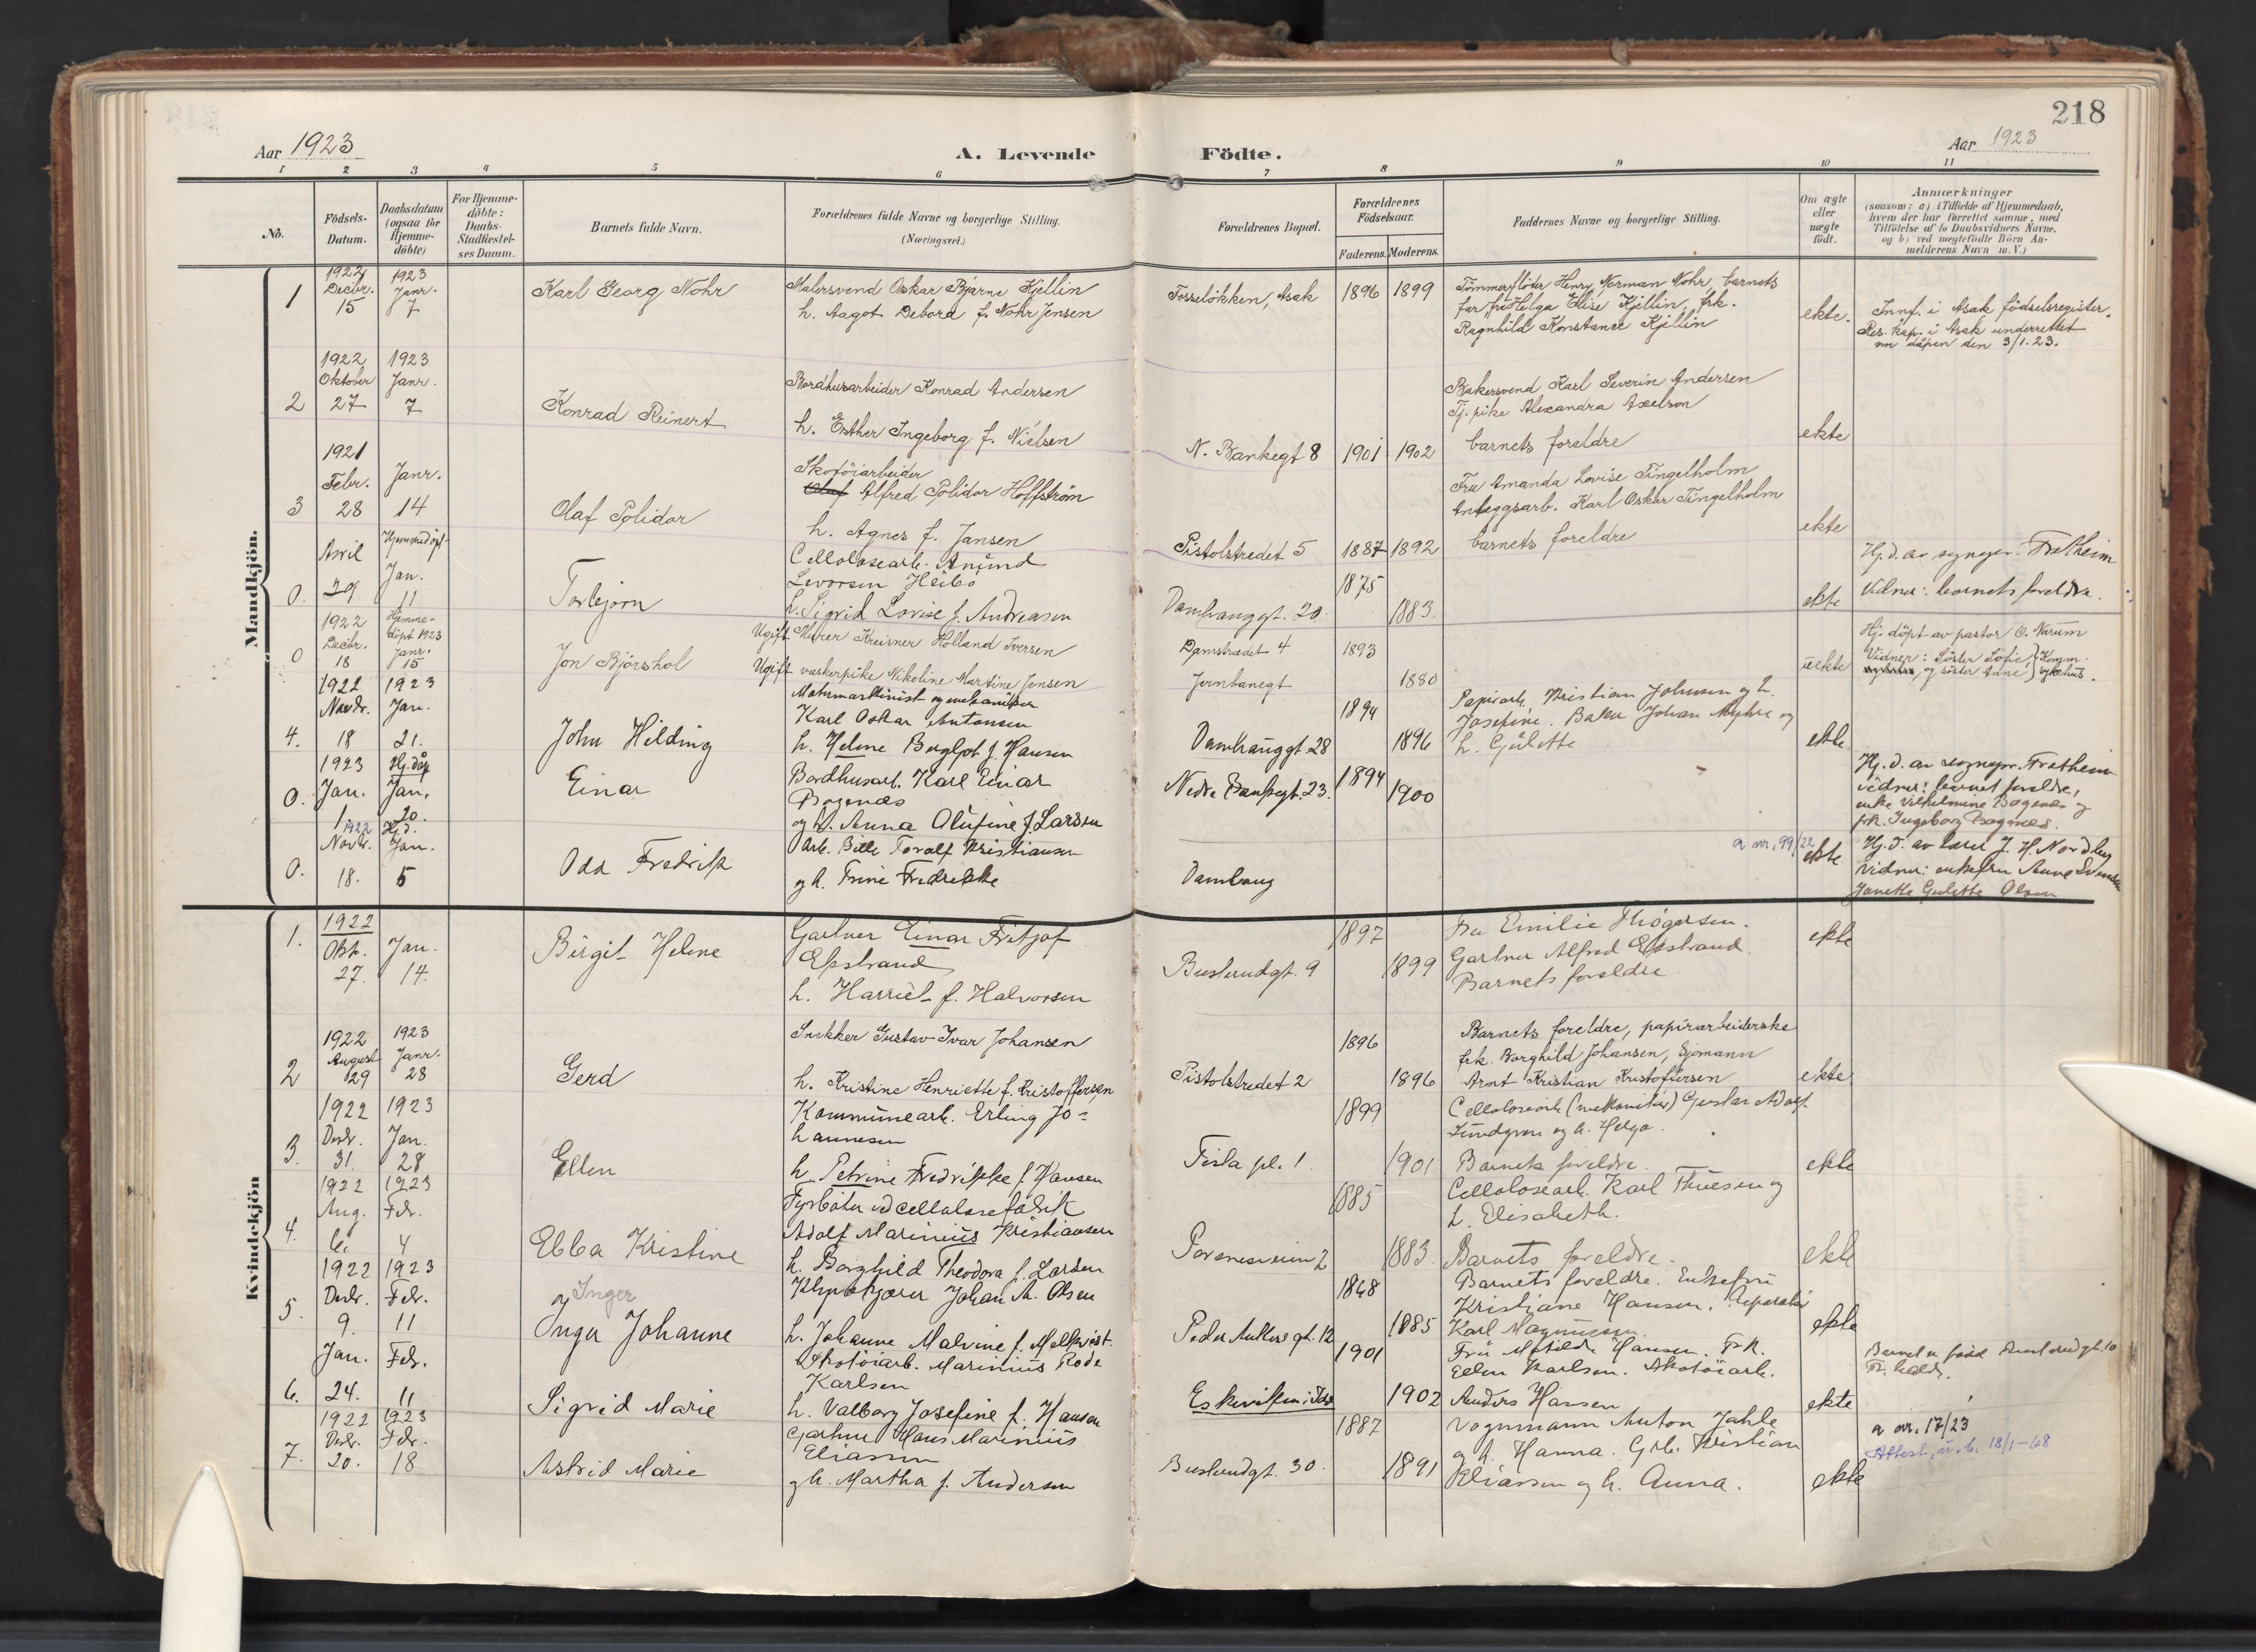 218
Aar 1923
A. Levende Födte.
Aar 1923
1 2 3 4 5 6 7 8 9 10 11
No.
Födsels-Datum.
Daabsdatum (ogsaa for Hjemme-döbte)
For Hjemme-döbte: Daabs-Stadfæstel-ses Datum.
Barnets fulde Navn.
Forældrenes fulde Navne og borgerlige Stilling.
(Næringsvei.)
Forældrenes Bopæl.
Forældrenes Födselsaar.
Faderens. Moderens.
Faddernes Navne og borgerlige Stilling.
Om ægte eller uægte födt.
Anmærkninger
(saasom: a) i Tilfælde af Hjemmedaab,
hvem der har forrettet samme, med
Tilföielse af to Daabsvidners Navne.
og b) ved uægtefödte Börn An-
melderens Navn m. V.)
Mandkjön.
1
1922 Decbr. 15
1923 Janr. 7
Karl Georg Nohr
Malersvend Oskar Bjarne Kjellin
h. Aagot Debora f. Nohr Jensen
Tosselökken, Asak
1896 1899
Tömmerflöter Henry Norman Nohr, barnets
far, fru Helga Elise Kjellin, frk.
Ragnhild Konstance Kjellin
ekte.
Innf. i Asak födselsregister.
Res. kap. i Asak underrettet
om dåpen den 3/1.23.
2
1922 Oktober 27
1923 Janr. 7
Konrad Reinert
Bordhusarbeider Konrad Andersen
h. Esther Ingeborg f. Nielsen
N. Bankegt 8
1901 1902
Bakersvend Karl Severin Andersen
Tj. pike Alexandra Axelson
barnets foreldre
ekte
3
1921 Febr. 28
Janr. 14
Olaf Polidor
Skotöiarbeider
Olaf Alfred Polidor Hoffström
h. Agnes f. Jansen
Pistolstredet 5
1887 1892
Fru Amanda Lovise Tingelholm
Anleggsarb. Karl Oskar Tingelholm
barnets foreldre
ekte
0.
April 29
Hjemmedöpt Jan. 11
Torbjørn
Cellulosearb. Anund
Levorsen Heibö
h. Sigrid Lovise f. Andreasen
Damhauggt. 20.
1875 1883.
ekte
Hj. d. av sognepr. Fretheim
Vidner: barnets foreldre.
0
1922 Decbr. 18
Hjemme-döpt 1923 Janr. 15
Jon Bjørshol
Ugift Murer Kreisner Holland Iversen
Ugift vaskerpike Nikoline Martine Jensen
Damstredet 4
Jernbanegt
1893 1880
uekte
Hj. döpt av pastor O. Narum
Vidner: Söster Sofie, og söster Anne } Komm. sykehus.
4.
1922 Novbr. 18
1923 Jan. 21.
John Hilding
Motormaskinist og mekaniker
Karl Oskar Antonsen
h. Helene Bergljot f. Hansen
Damhauggt. 28
1894 1896
Papirarb. Kristian Johnsen og h.
Josefine. Baker Johan Myhre og
h. Gulette
ekte
0.
1923 Jan. 1.
Hj. dåp Jan. 20.
Einar
Bordhusarb. Karl Einar
Bagenæs
og h. Anna Alufine f. Larsen
Nedre Bankegt. 23.
1894 1900
Hj. d. av sognepr. Fretheim
vidner: barnets foreldre,
enke Vilhelmine Bagenæs og
frk. Ingeborg Bagenæs.
0.
1922 Novbr. 18.
Hj. d. Jan. 5
Odd Fredrik
Arb. Toralf Kristiansen
og h. Trine Fredrikke
Damhaug
a nr. 99/22
ekte
Hj. d. av lærer J. H. Nordby
vidner: enkefru Anne Svensen
Janette Gulette Olsen
Kvindekjön
1.
1922 Okt. 27.
Jan. 14.
Birgit Helene
Gartner Einar Fritjof
Ekstrand
h. Harriet f. Halvorsen
Busterudgt. 9
1897 1899
Fru Emilie Thøgersen.
Gartner Alfred Ekstrand.
Barnets foreldre
ekte
2
1922 August 29
1923 Janr. 28
Gerd
Snekker Gustav Ivar Johansen
h. Kristine Henriette f. Kristoffersen
Pistolstredet 2
1896 1896
Barnets foreldre, papirarbeiderske
frk. Borghild Johansen, Sjømann
Arnt Kristian Kristoffersen
ekte
3.
1922 Desbr. 31.
1923 Jan. 28
Ellen
Kommunearb. Erling Jo-
hannesen
h. Petrine Fredrikke f. Hansen
Tista pl. 1.
1899 1901
Cellulosearb. (mekaniker) Gustav Adolf
Lundgren og h. Helga.
Barnets foreldre.
ekte
4.
1922 Aug. 6.
1923 Febr. 4
Ebba Kristine
Fyrbøter ved cellulosefabrik
Adolf Marinius Kristiansen
h. Borghild Theodora f. Larsen
2
1885 1883.
Cellulosearb. Karl Thuesen og
h. Elisabeth.
Barnets foreldre.
ekte
5.
1922 Desbr. 9.
1923 Febr. 11
og Inger
Inger Johanne
Johan A. Olsen
h. Johanne Malvine f. Melkvist.
Peder Ankers gt. 12
1868 1885
Barnets foreldre. Enkefru
Kristiane Hansen. Reparatør
Karl Magnussen
ekte
6.
Jan. 24.
Febr. 11
Sigrid Marie
Skotöiarb. Marinius Rode
Karlsen
h. Valborg Josefine f. Hansen
Eskeviken i Idd
1901 1902
Fru Matilde Hansen. Frk.
Ellen Karlsen. Skotöiarb.
Anders Hansen
ekte
Barnet er född Busterudgt. 10
Fr.hald.
7.
1922 Desbr. 20.
1923 Febr. 18
Astrid Marie
Gartner Hans Marinius
Eliassen
og h. Martha f. Andersen
Busterudgt. 30.
1887 1891
Vognmann Anton Jahle
og h. Hanna. Grb. Kristian
Eliassen og h. Anna.
ekte
a nr. 17/23
Attest u. b. 18/1-68